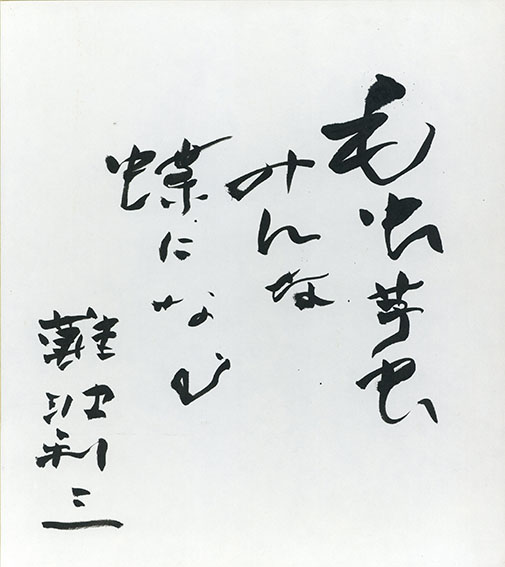 毛虫芋虫
みんな
蝶になる
難波利三